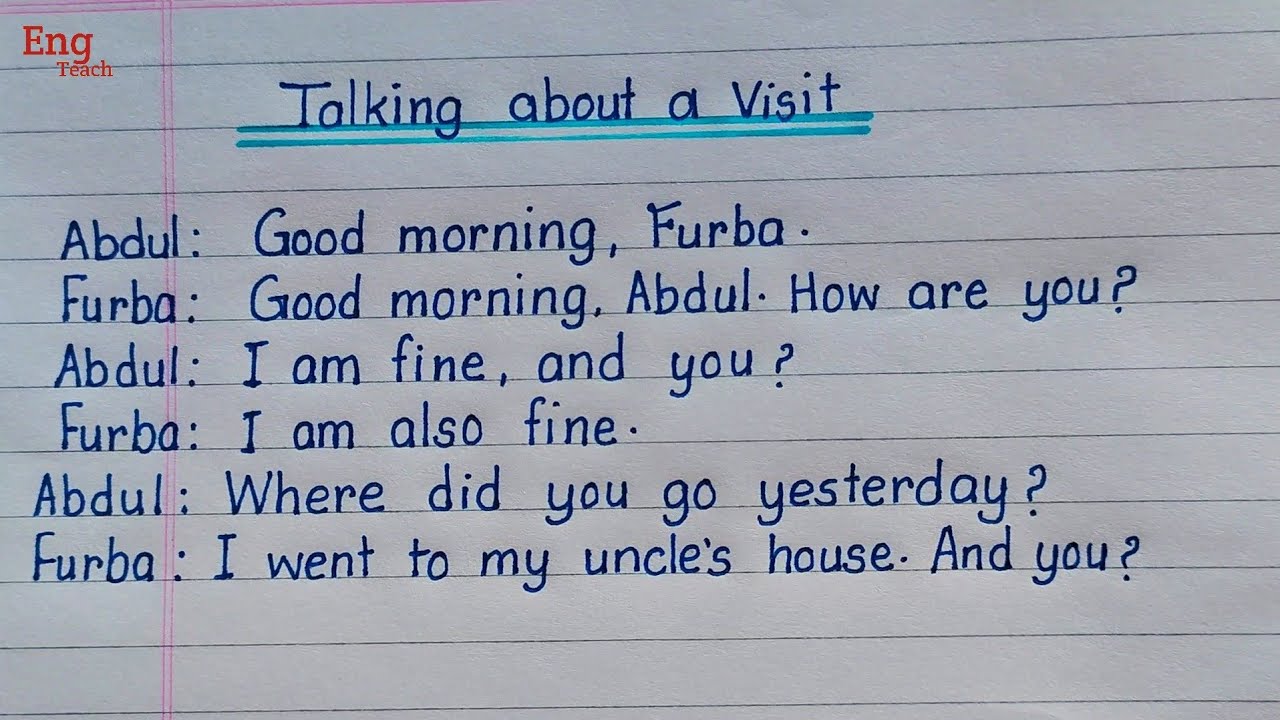 Eng
Teach
Talking about a Visit
Abdul: Good morning, Furba.
Furba: Good morning, Abdul. How are you?
Abdul: I am fine, and you?
Furba: I am also fine.
Abdul: Where did you go yesterday?
Furba: I went to my uncle's house. And you?